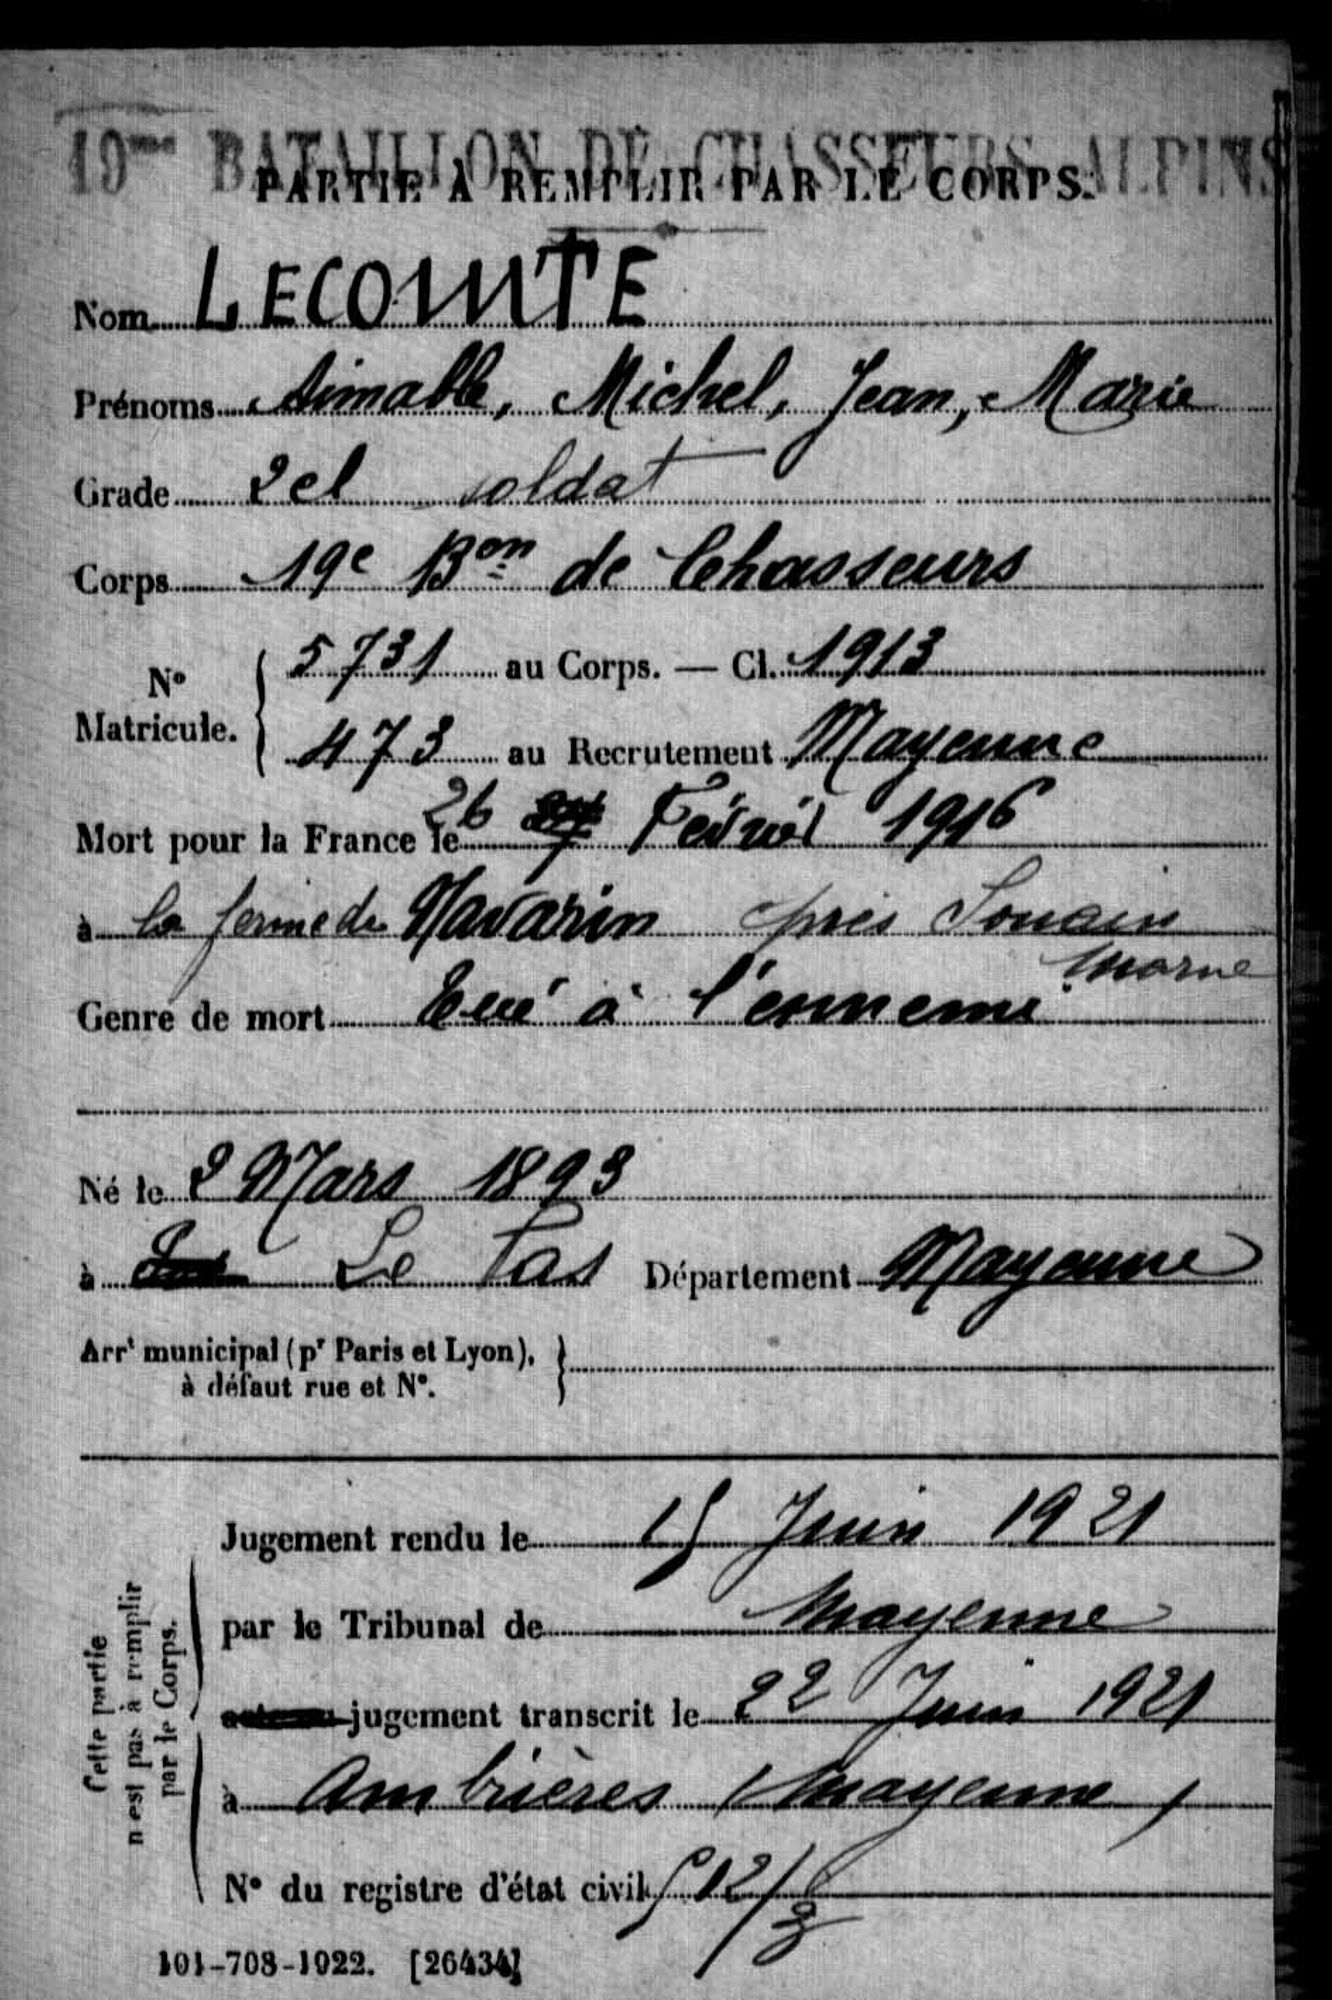 19me BATAILLON DE CHASSEURS ALPINS
PARTIE À REMPLIR PAR LE CORPS.
Nom LECOMTE
Prénoms Aimable, Michel, Jean, Marie
Grade 2 cl soldat
Corps 19e Bon de Chasseurs
No Matricule. 5731 au Corps. — Cl. 1913
473 au Recrutement Mayenne
Mort pour la France le 26 Février 1916
à la ferme de Navarin près Souain
Marne
Genre de mort Tué à l'ennemi
Né le 2 Mars 1893
à Le Pas Département Mayenne
Arrt municipal (pr Paris et Lyon),
à défaut rue et N°.
Cette partie
n'est pas à remplir
par le Corps.
Jugement rendu le 15 Juin 1921
par le Tribunal de Mayenne
jugement transcrit le 22 Juin 1921
à Ambrières (Mayenne)
N° du registre d'état civil
101-708-1922. [26434]